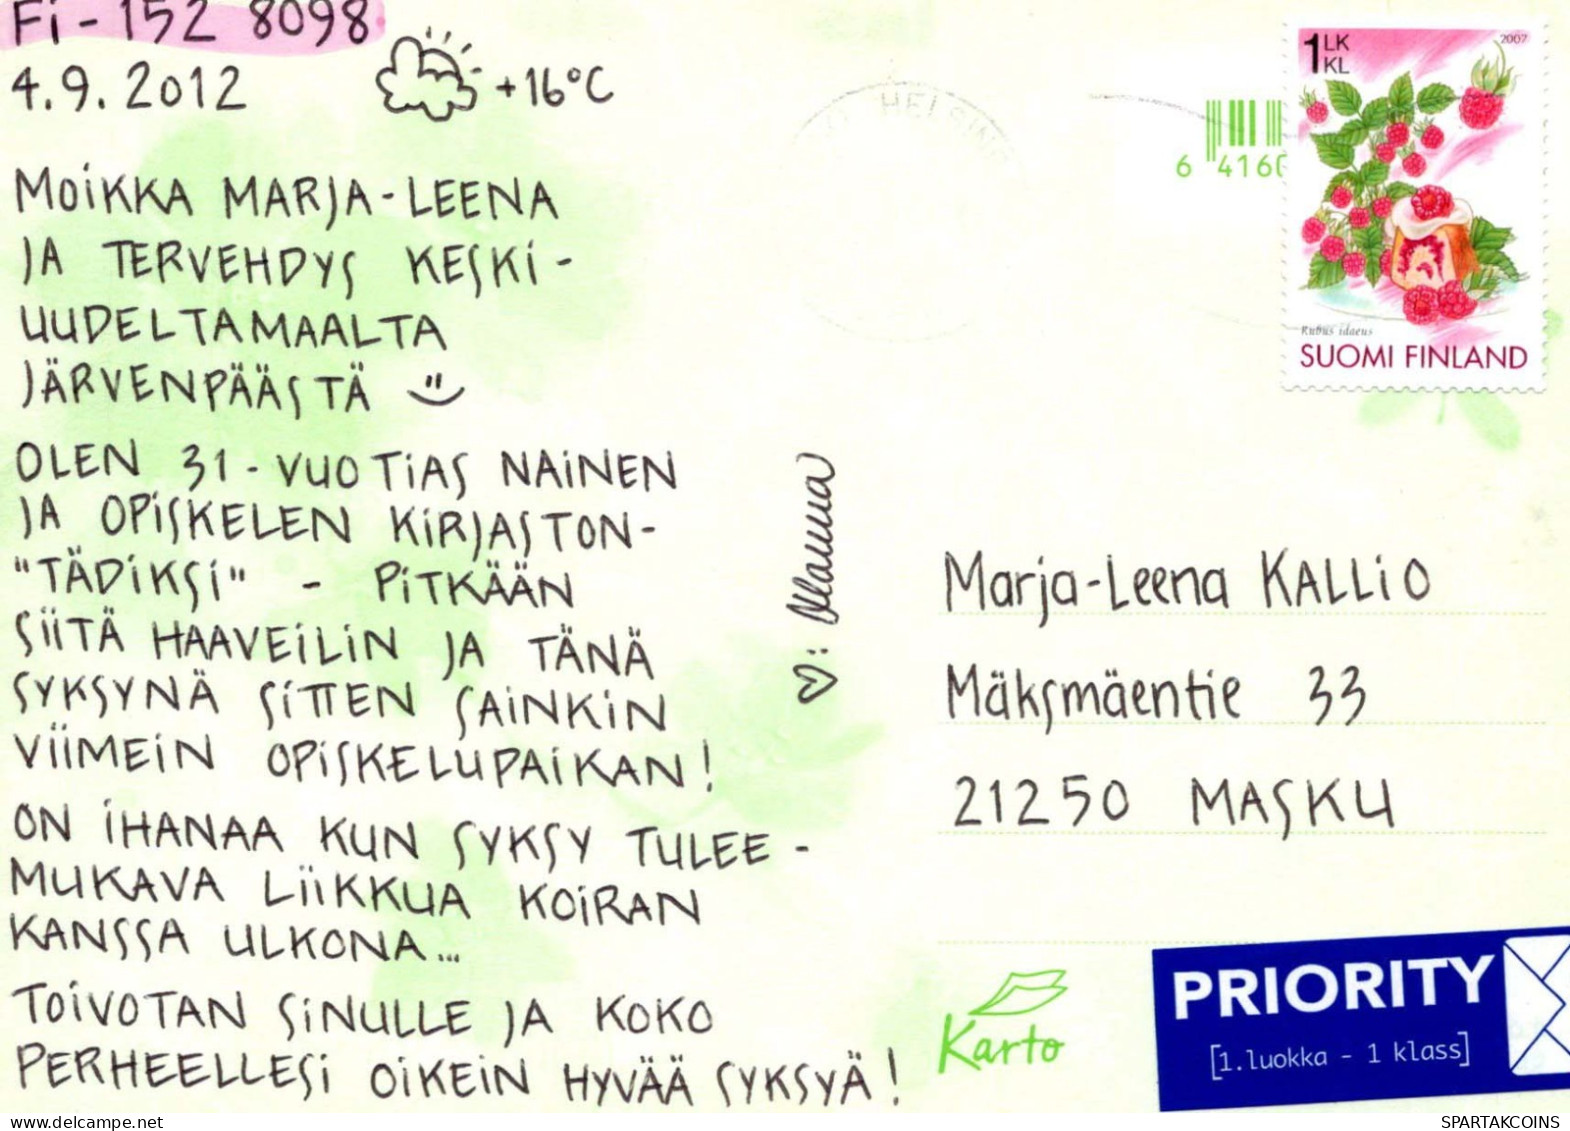 Fi - 152 8098
4.9.2012 +16°C
MOIKKA MARJA-LEENA
JA TERVEHDYS KESKI-
UUDELTAMAALTA
JÄRVENPÄÄSTÄ
OLEN 31-VUOTIAS NAINEN
JA OPISKELEN KIRJASTON-
"TÄDIKSI" - PITKÄÄN
SIITÄ HAAVEILIN JA TÄNÄ
SYKSYNÄ SITTEN SAINKIN
VIIMEIN OPISKELUPAIKAN!
ON IHANAA KUN SYKSY TULEE -
MUKAVA LIIKKUA KOIRAN
KANSSA ULKONA...
TOIVOTAN SINULLE JA KOKO
PERHEELLESI OIKEIN HYVÄÄ SYKSYÄ!
♡:
HELSIN
6 4160
1 LK
KL
2007
Rubus idaeus
SUOMI FINLAND
Marja-Leena KALLIO
Mäksmäentie 33
21250 MASKU
Karto
PRIORITY
[1.luokka - 1 klass]
SPARTAKCOINS